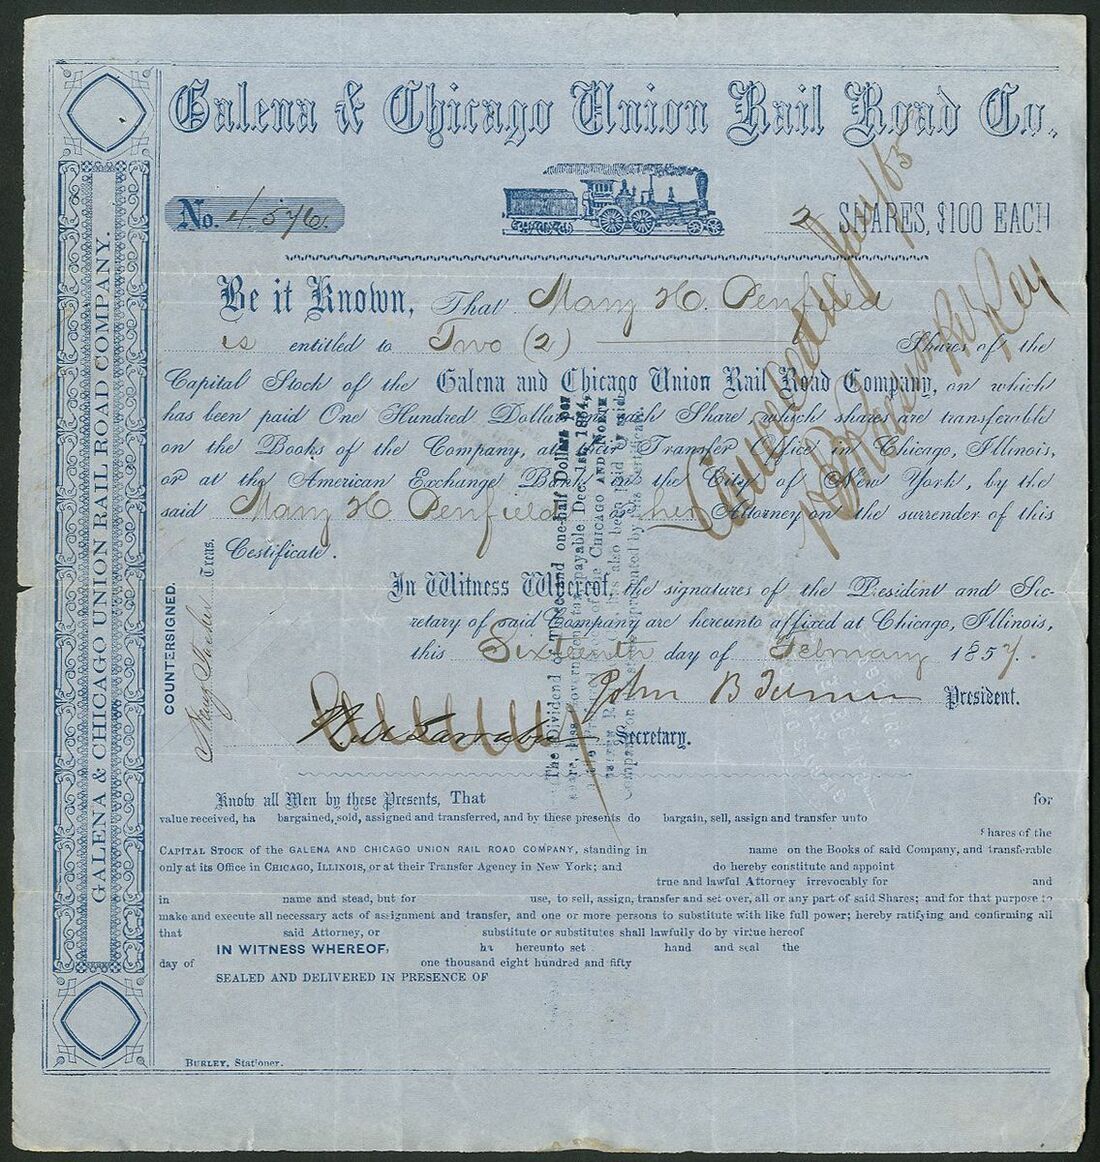 Galena & Chicago Union Rail Road Co.
No. 4576.
2 SHARES, $100 EACH
Be it Known, That Mary H. Penfield
is entitled to Two (2) Shares of the
Capital Stock of the Galena and Chicago Union Rail Road Company, on which
has been paid One Hundred Dollars on each Share which shares are transferable
on the Books of the Company, at their Transfer Office in Chicago, Illinois,
or at the American Exchange Bank in the City of New York, by the
said Mary H Penfield or her Attorney on the surrender of this
Certificate.
In Witness Whereof, the signatures of the President and Sec-
retary of said Company are hereunto affixed at Chicago, Illinois,
this Sixteenth day of February 1857.
John B Turner President.
Secretary.
COUNTERSIGNED.
Treas.
GALENA & CHICAGO UNION RAILROAD COMPANY.
The Dividend of Three and one-half Dollars per
payable Dec. 1st, 1864,
CHICAGO AND NORTH
has also been paid by said
Company on represented by this Certificate.
Know all Men by these Presents, That for
value received, ha bargained, sold, assigned and transferred, and by these presents do bargain, sell, assign and transfer unto
Shares of the
CAPITAL STOCK of the GALENA AND CHICAGO UNION RAIL ROAD COMPANY, standing in name on the Books of said Company, and transferable
only at its Office in CHICAGO, ILLINOIS, or at their Transfer Agency in New York; and do hereby constitute and appoint
true and lawful Attorney irrevocably for and
in name and stead, but for use, to sell, assign, transfer and set over, all or any part of said Shares; and for that purpose to
make and execute all necessary acts of assignment and transfer, and one or more persons to substitute with like full power; hereby ratifying and confirming all
that said Attorney, or substitute or substitutes shall lawfully do by virtue hereof
IN WITNESS WHEREOF, ha hereunto set hand and seal the
day of one thousand eight hundred and fifty
SEALED AND DELIVERED IN PRESENCE OF
BURLEY, Stationer.